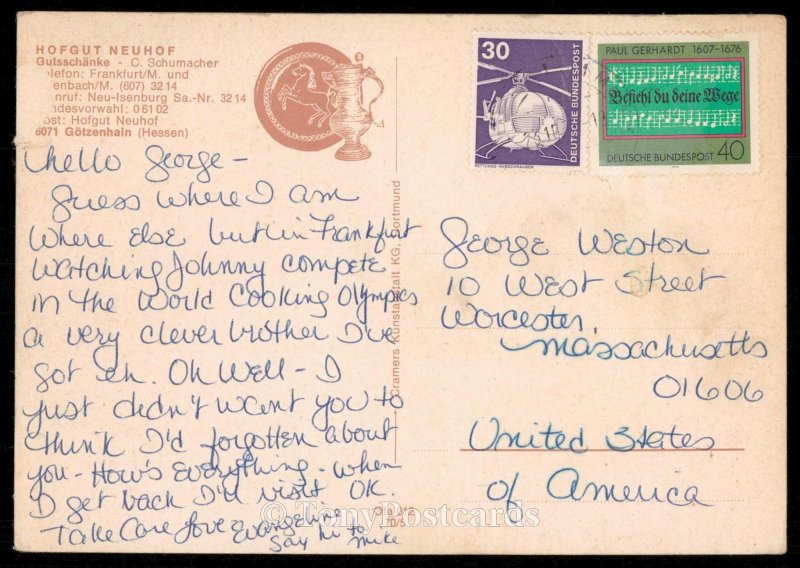 HOFGUT NEUHOF
Gutsschänke - C. Schumacher
elefon: Frankfurt/M. und
enbach/M. (607) 32 14
nruf: Neu-Isenburg Sa.-Nr. 32 14
ndesvorwahl: 0 61 02
ost: Hofgut Neuhof
6071 Götzenhain (Hessen)
30
DEUTSCHE BUNDESPOST
RETTUNGS-HUBSCHRAUBER
PAUL GERHARDT 1607-1676
Befiehl du deine Wege
DEUTSCHE BUNDESPOST 40
Hello George -
Guess where I am
Where else but in Frankfurt
Watching Johnny compete
in the World Cooking Olympics
a very clever brother I've
got eh. Oh Well - I
just didn't want you to
think I'd forgotten about
you - How's everything - when
I get back I'll visit OK.
Take Care Love Evangeline
Say hi to
Mike
Cramers Kunstanstalt KG, Dortmund
George Weston
10 West Street
Worcester,
Massachusetts
01606
United States
of America
© TonyPostcards